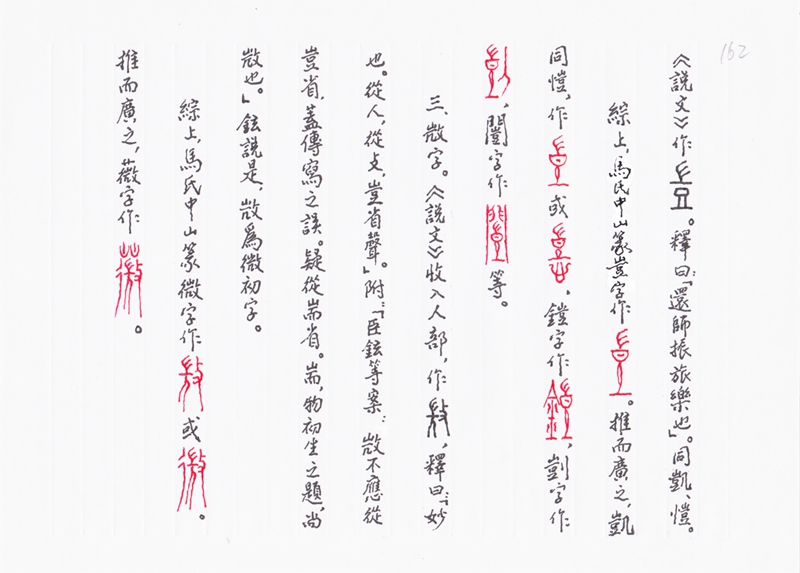 162
《說文》作豈。釋曰：「還師振旅樂也」。同凱、愷。
綜上，馬氏中山篆豈字作豈。推而廣之，凱
同愷，作豈或愷，鎧字作鎧，剴字作
剴，闓字作闓等。
三、𢼸字。《說文》收入人部，作𢼸，釋曰：「妙
也。從人，從攴，豈省聲。」附：「臣鉉等案：𢼸不應從
豈省，蓋傳寫之誤。疑從耑省。耑，物初生之題，尚
𢼸也。」鉉說是，𢼸爲微初字。
綜上，馬氏中山篆微字作𢼸或微。
推而廣之，薇字作薇。